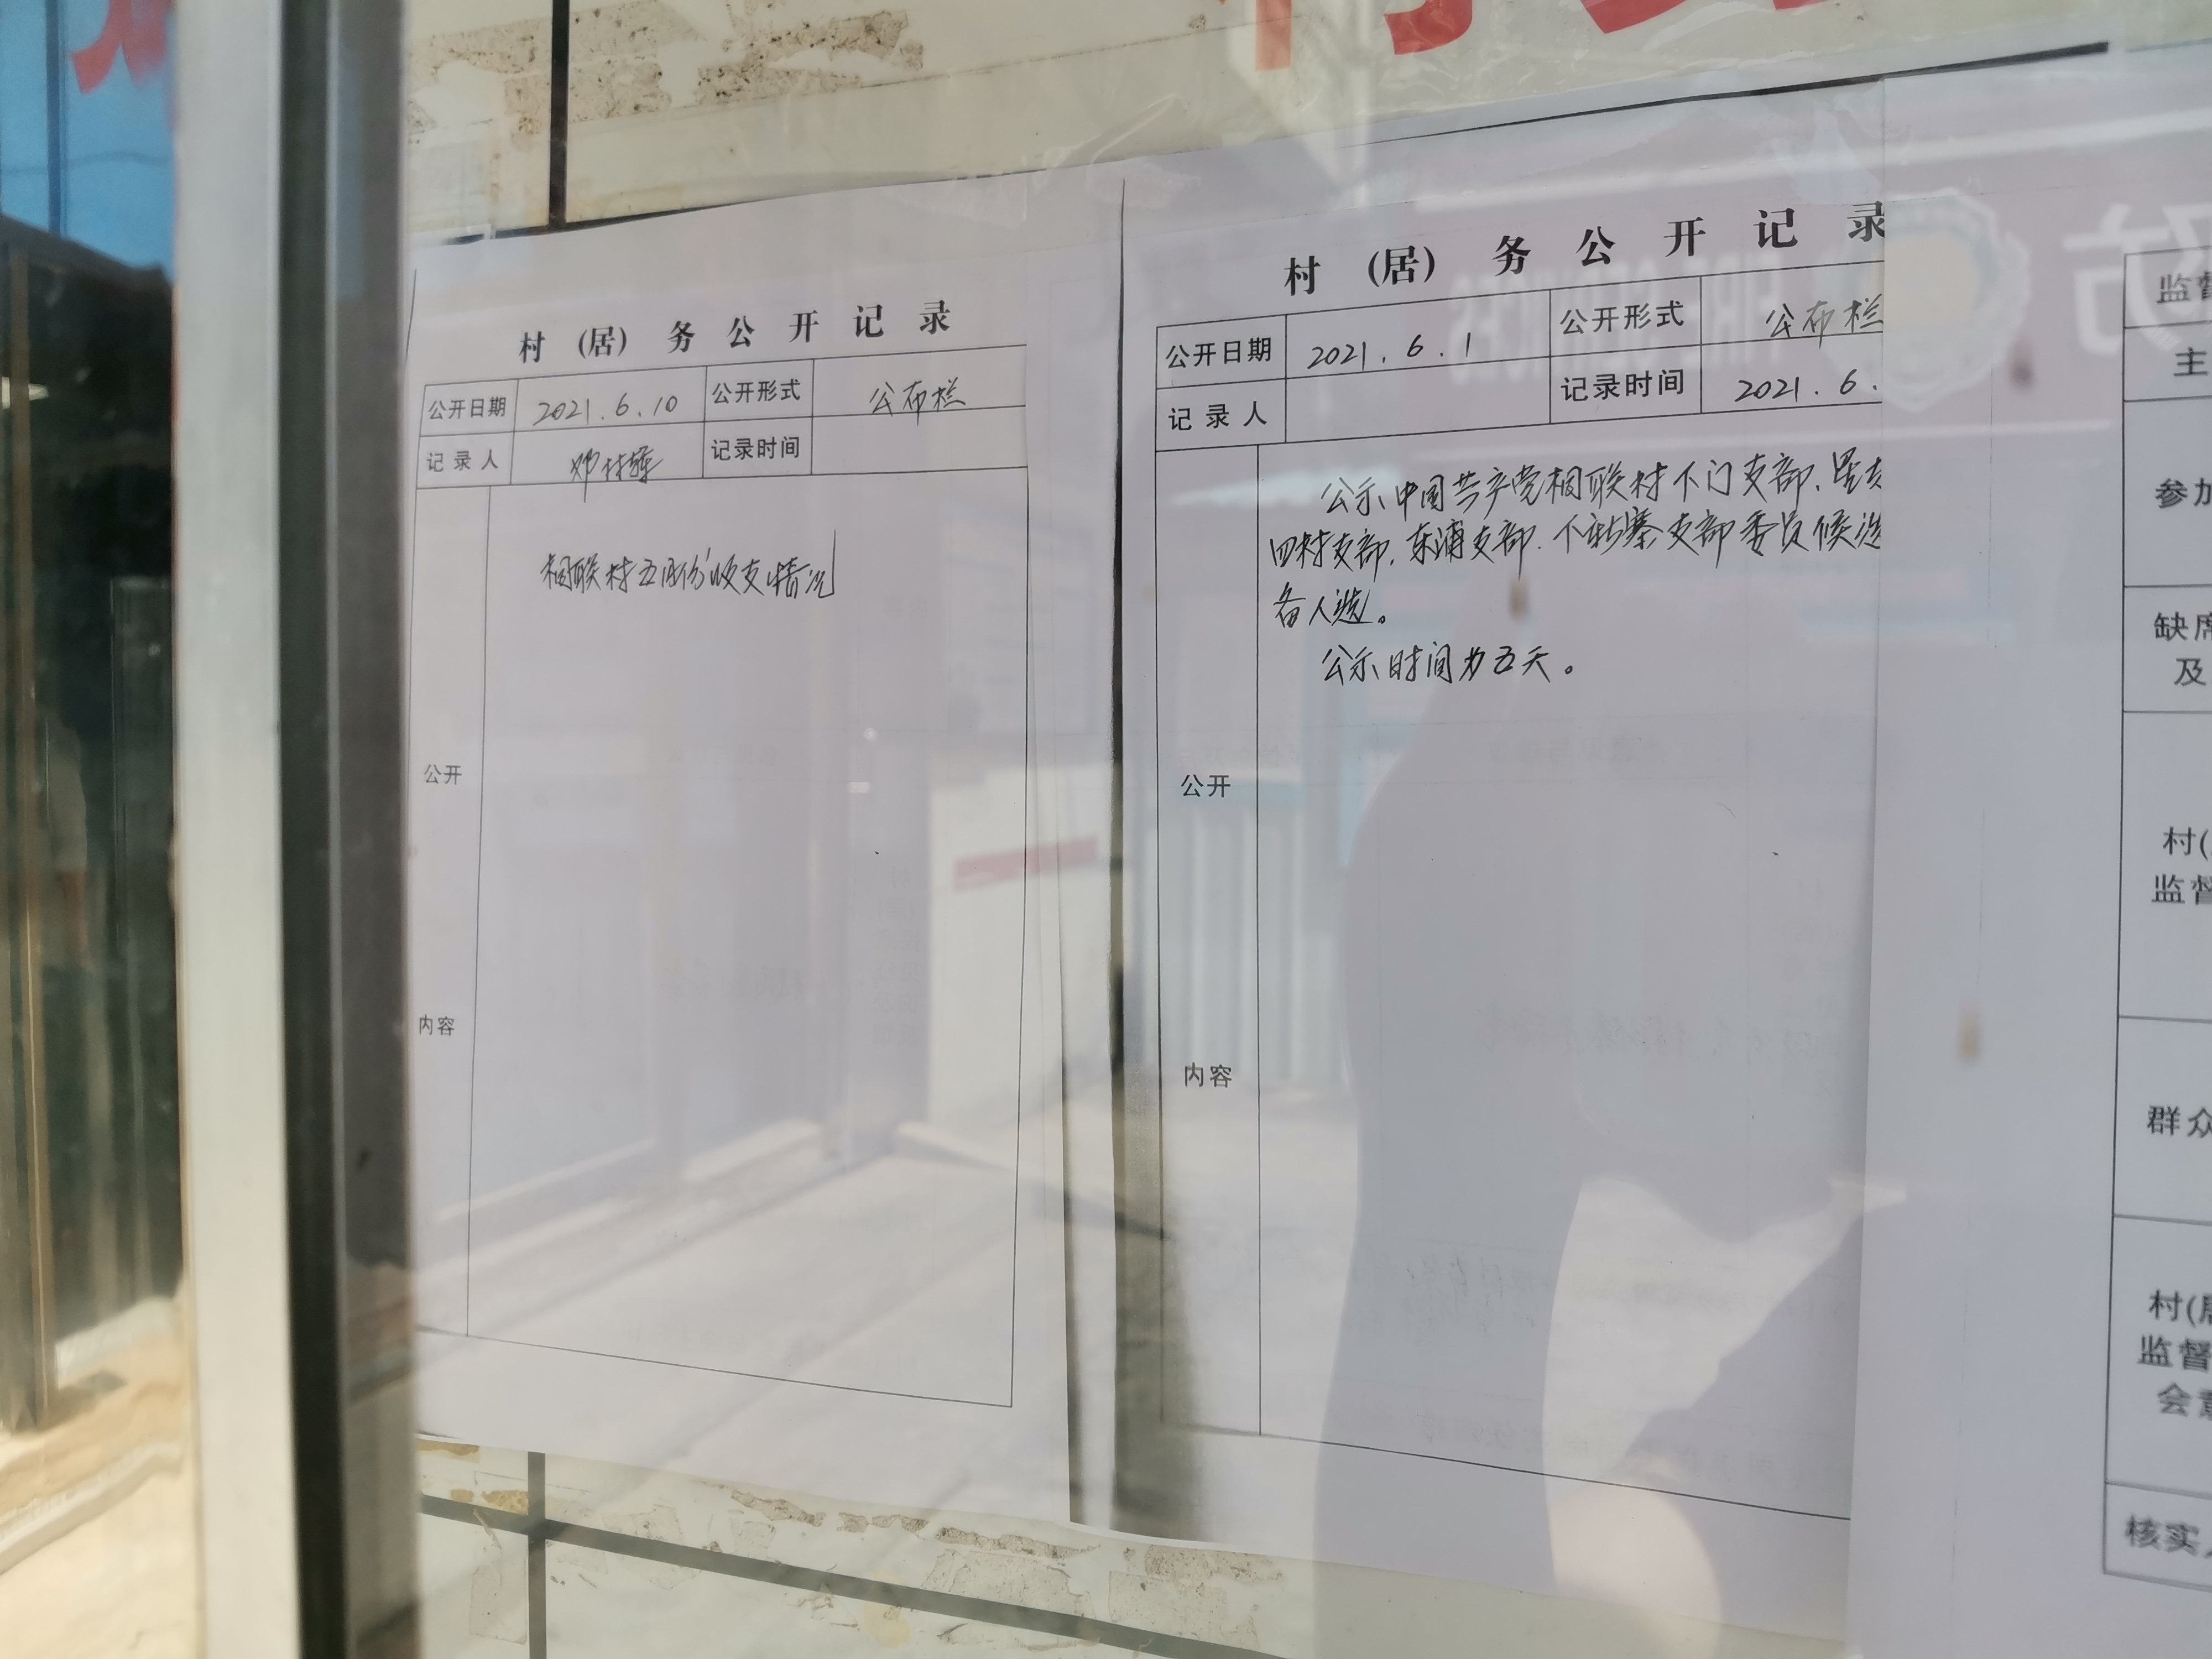 村 (居) 务 公 开 记 录
公开日期 2021.6.10 公开形式 公布栏
记 录 人 记录时间
桐联村五月份收支情况
公开
内容
村 (居) 务 公 开 记 录
公开日期 2021.6.1 公开形式 公布栏
记 录 人 记录时间 2021.6.
公示中国共产党桐联村下门支部、
四村支部、东浦支部、下新寨支部委员候选
备人选。
公示时间为五天。
公开
内容
监督
主
参加
缺席
及
村(
监督
群众
村(居
监督
会意
核实人